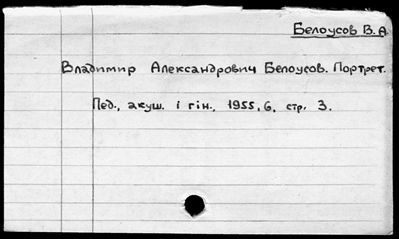 Белоусов В.А.
Владимир Александрович Белоусов. Портрет.
Пед., акуш. і гін., 1955, 6, стр. 3.